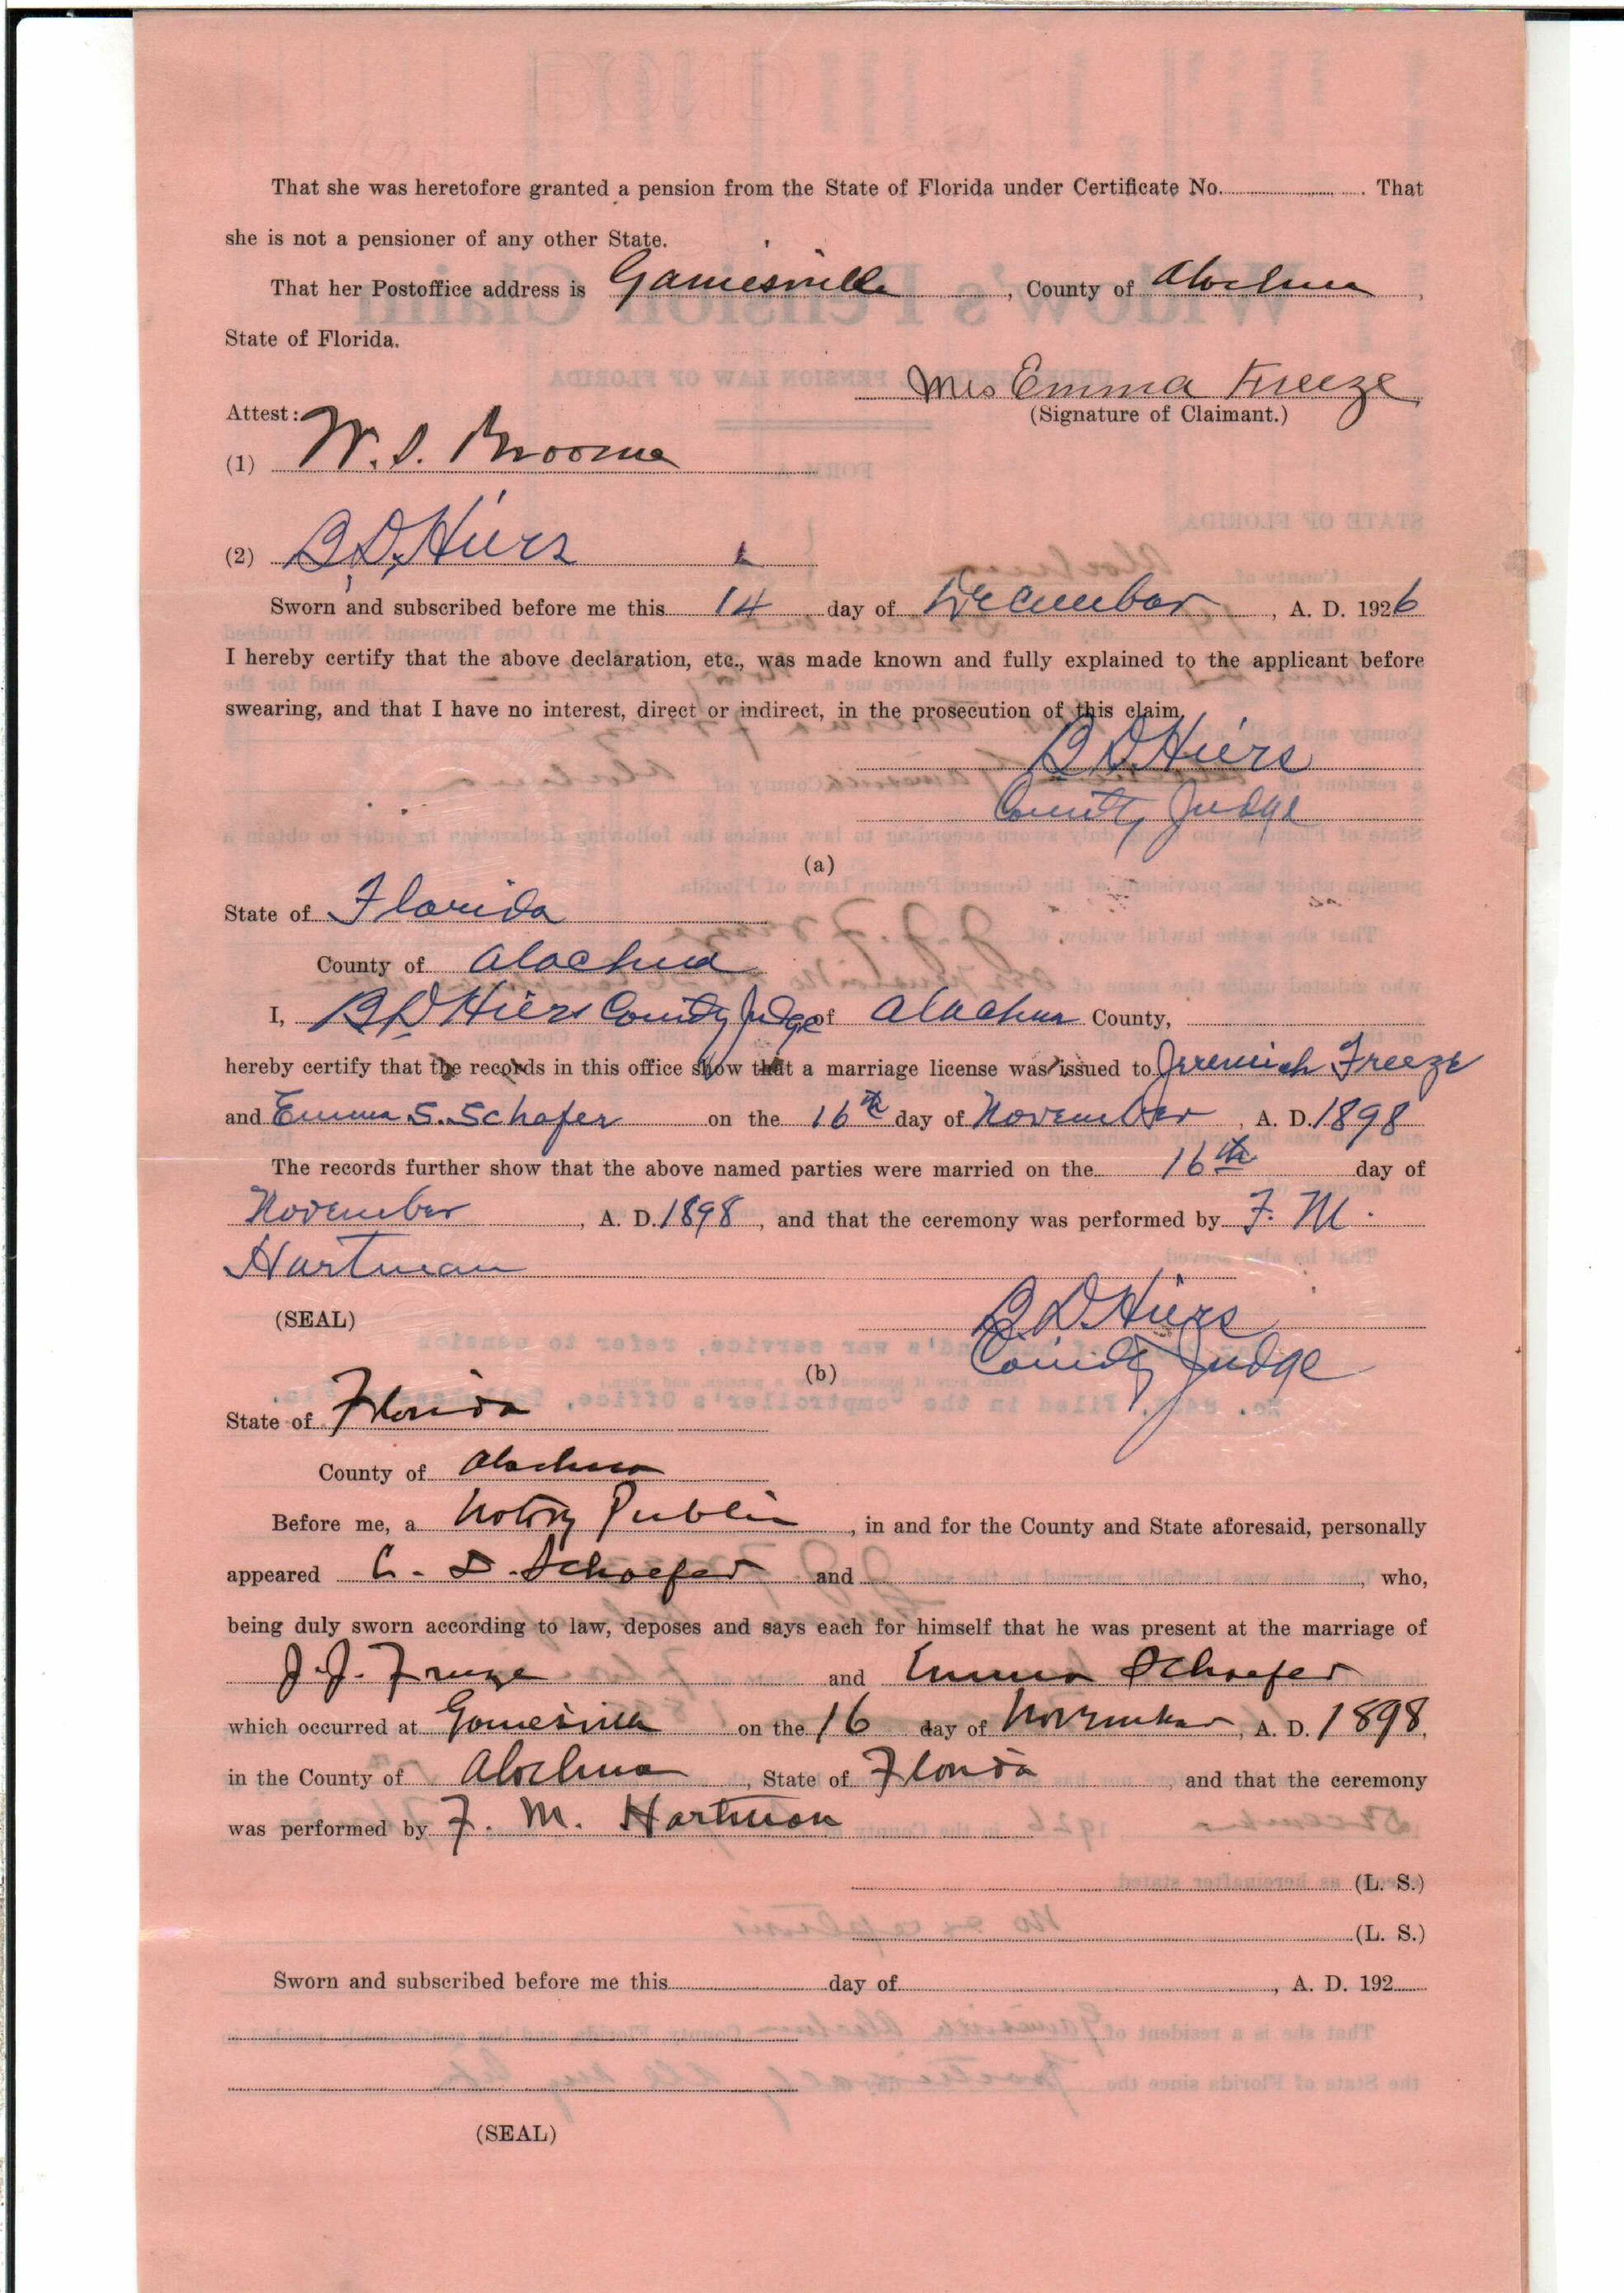 That she was heretofore granted a pension from the State of Florida under Certificate No. . That
she is not a pensioner of any other State.
That her Postoffice address is Gainesville, County of Alachua,
State of Florida.
Mrs Emma Freeze
Attest: (Signature of Claimant.)
(1) W. S. Broome
(2) B. D. Hiers
Sworn and subscribed before me this 14 day of December, A. D. 1926
I hereby certify that the above declaration, etc., was made known and fully explained to the applicant before
swearing, and that I have no interest, direct or indirect, in the prosecution of this claim
B D Hiers
County Judge
(a)
State of Florida
County of Alachua
I, B D Hiers County Judge of Alachua County,
hereby certify that the records in this office show that a marriage license was issued to Jeremiah Freeze
and Emma S. Schafer on the 16th day of November, A. D. 1898
The records further show that the above named parties were married on the 16th day of
November, A. D. 1898, and that the ceremony was performed by F. M.
Hartman
(SEAL) B D Hiers
County Judge
(b)
State of Florida
County of Alachua
Before me, a Notory Public, in and for the County and State aforesaid, personally
appeared C. D. Schoefer and , who,
being duly sworn according to law, deposes and says each for himself that he was present at the marriage of
J. J. Freeze and Emma Schoefer
which occurred at Gainesville on the 16 day of November, A. D. 1898,
in the County of Alachua, State of Florida, and that the ceremony
was performed by F. M. Hartman
(L. S.)
(L. S.)
Sworn and subscribed before me this day of , A. D. 192
(SEAL)